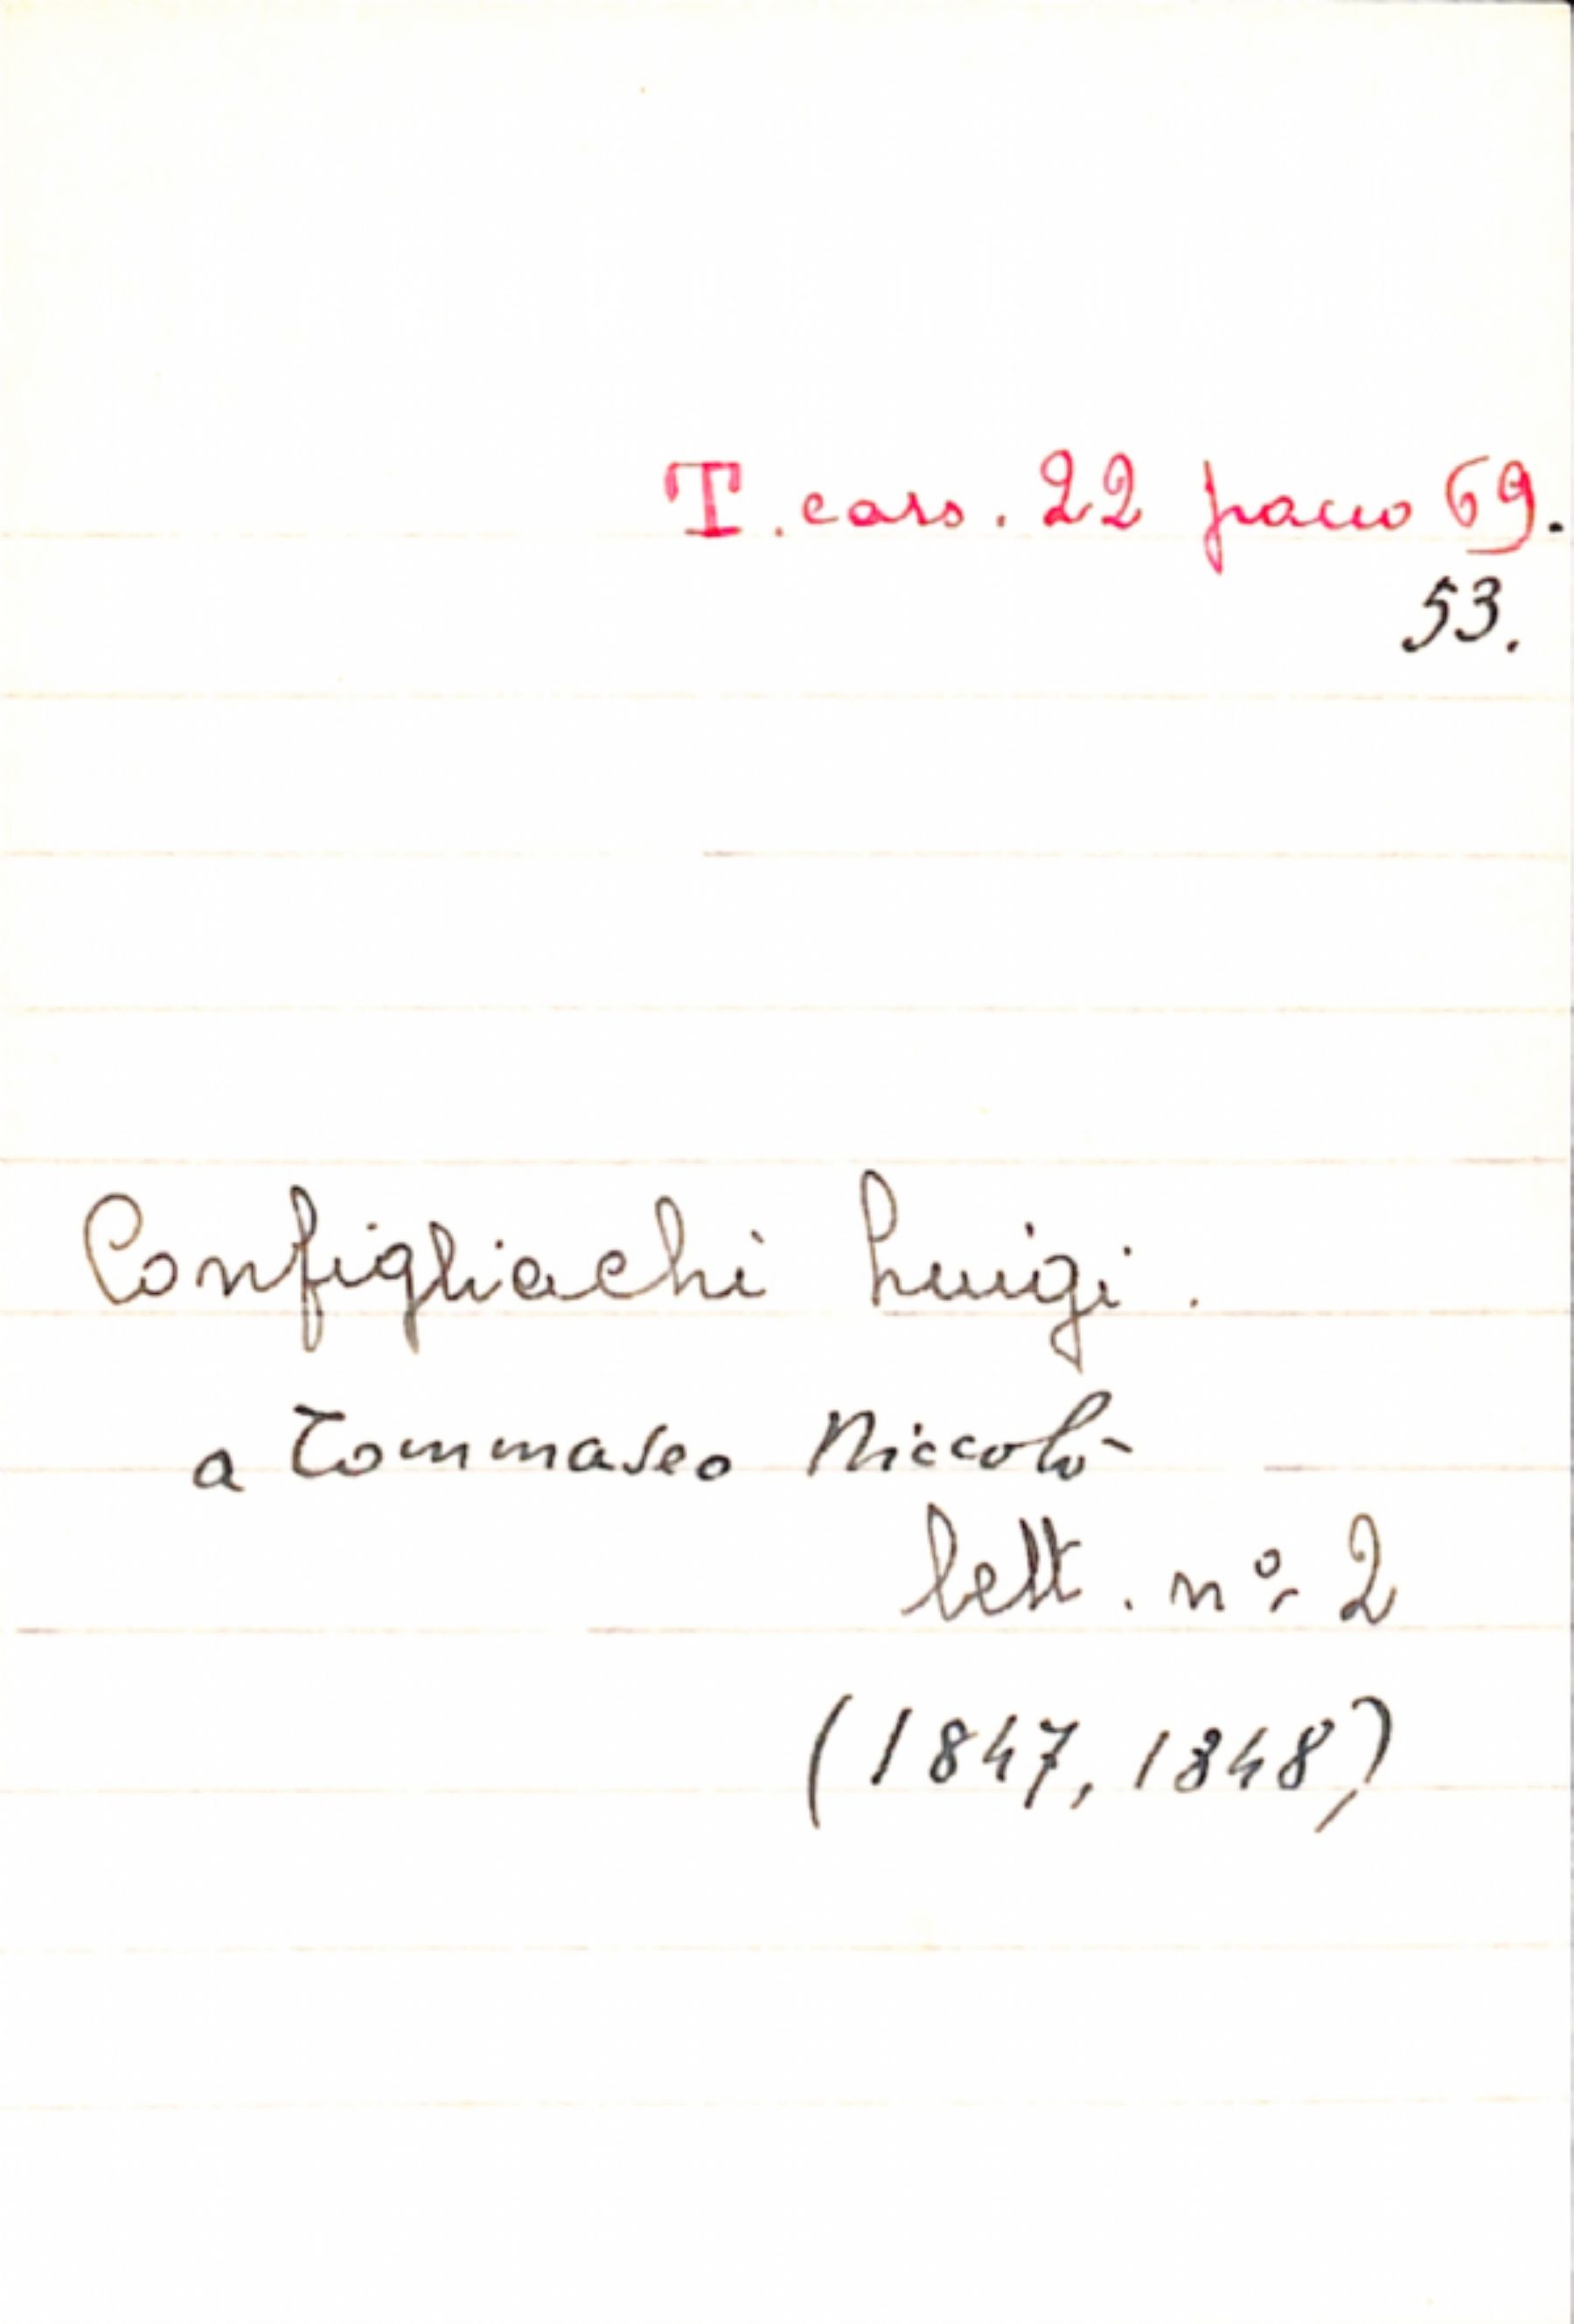 T. cass. 22 pacco 69.
53.
Configliachi Luigi.
a Tommaseo Niccolò
lett. nº 2
(1847, 1848)